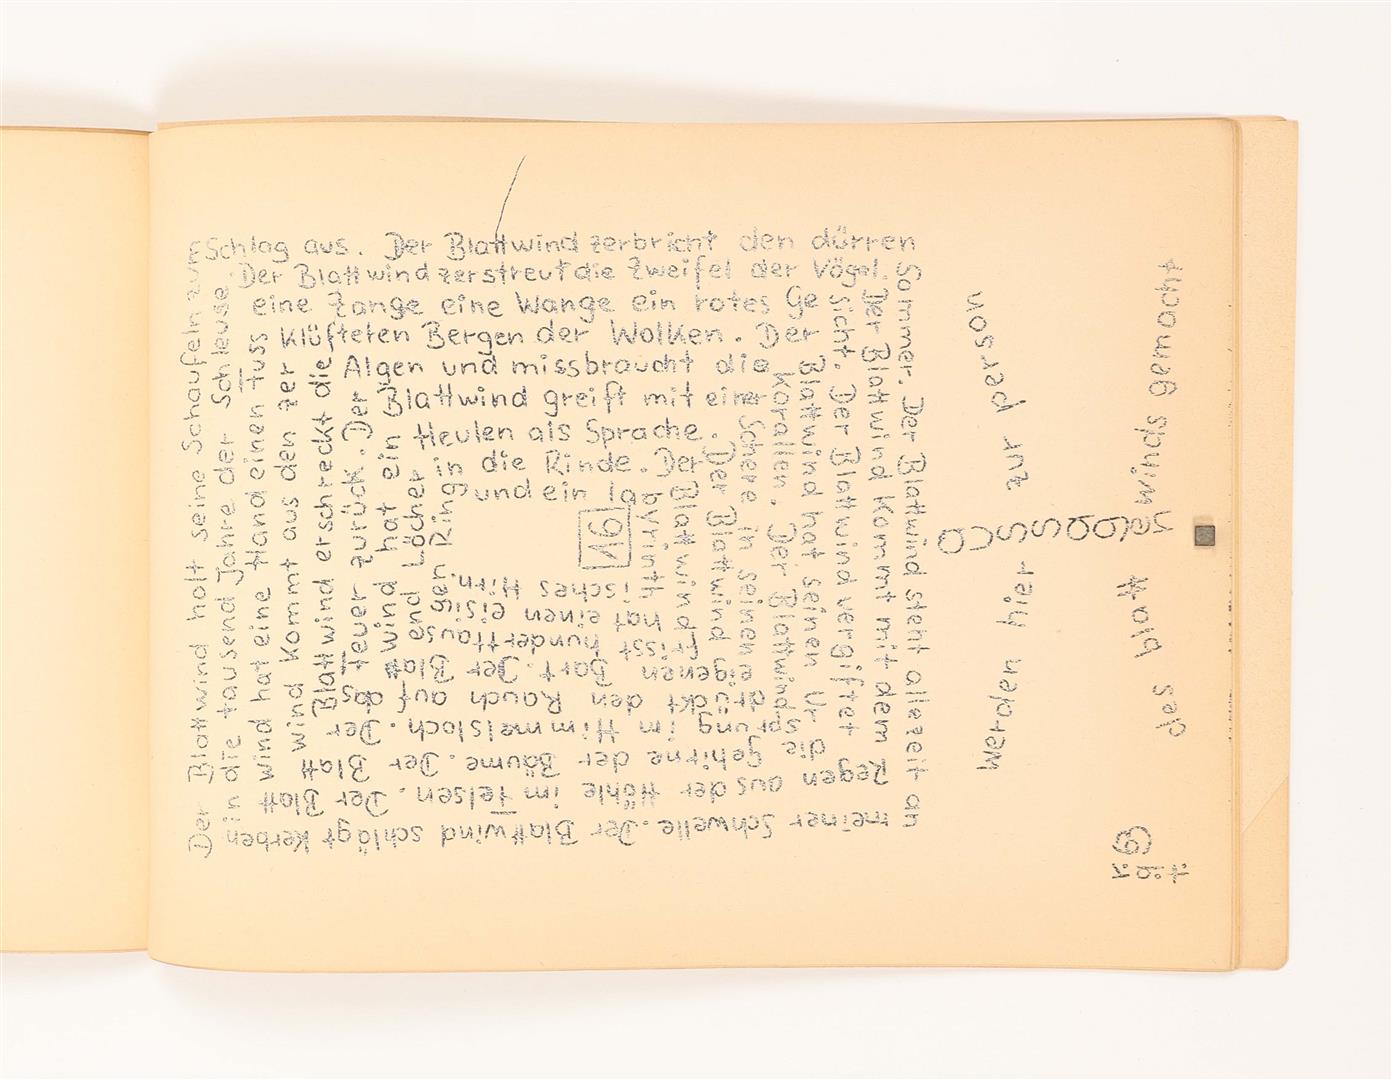 Der Blattwind holt seine Schaufeln zum
Schlag aus. Der Blattwind zerbricht den dürren
Sommer. Der Blattwind steht allezeit an
meiner Schwelle. Der Blattwind schlägt Kerben
in die tausend Jahre der Schleuse.
Der Blattwind zerstreut die Zweifel der Vögel.
Der Blattwind kommt mit dem
Regen aus der Höhle im Felsen. Der Blatt
wind hat eine Hand einen Fuss
eine Zange eine Wange ein rotes Ge
sicht. Der Blattwind vergiftet
die Gehirne der Bäume. Der Blatt
wind kommt aus den zer
klüfteten Bergen der Wolken. Der
Blattwind hat seinen Ur
sprung im Himmelsloch. Der
Blattwind erschreckt die
Algen und missbraucht die
Korallen. Der Blattwind
drückt den Rauch auf das
Feuer zurück. Der
Blattwind greift mit einer
Schere in seinen eigenen
Bart. Der Blatt
wind hat ein
Heulen als Sprache.
Der Blattwind
frisst hunderttause
end Löcher
in die Rinde. Der
Blattwind
hat einen eisigen
Ring
und ein la
byrinth
isches Hirn.
werden hier zur person
des blatt winds gemacht